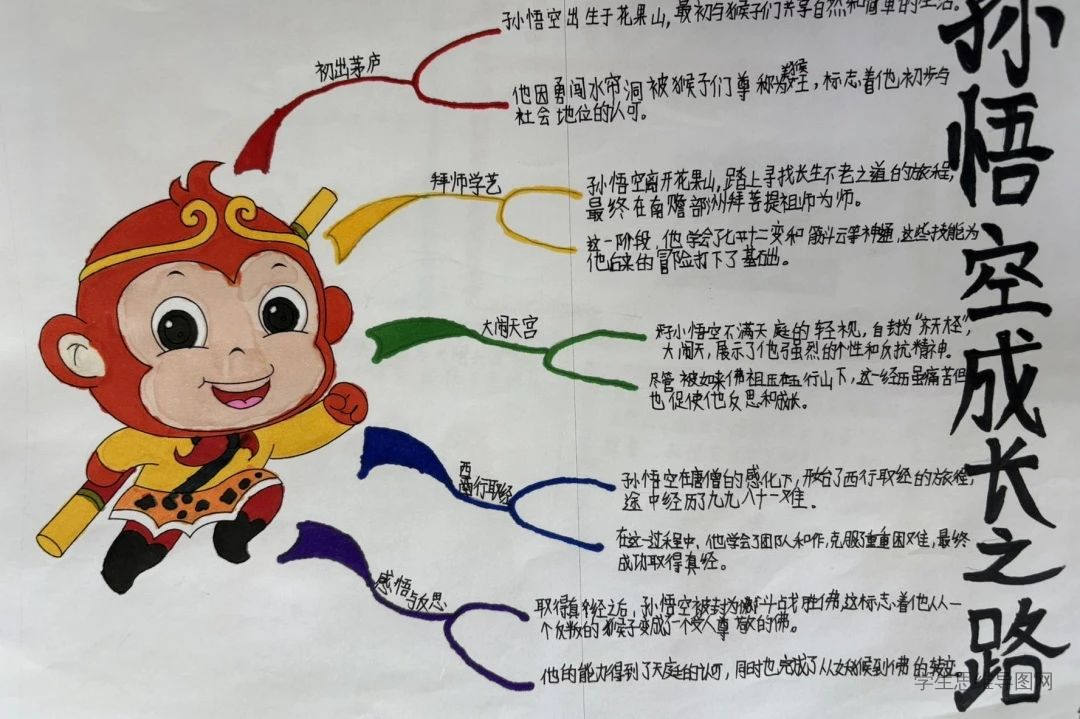 孙悟空成长之路
初出茅庐
孙悟空出生于花果山,最初与猴子们共享自然和简单的生活。
他因勇闯水帘洞被猴子们尊称为猴王,标志着他初步与
社会地位的认可。
拜师学艺
孙悟空离开花果山,踏上寻找长生不老之道的旅程,
最终在南赡部洲拜菩提祖师为师。
这一阶段,他学会了七十二变和筋斗云等神通,这些技能为
他后来的冒险打下了基础。
大闹天宫
孙悟空不满天庭的轻视,自封为
大闹天,展示了他强烈的个性和反抗精神。
尽管被如来佛祖压在五行山下,这一经历虽痛苦但
也促使他反思和成长。
西行取经
孙悟空在唐僧的感化下,开始了西行取经的旅程,
途中经历九九八十一难。
在这一过程中,他学会了团队和作,克服了重重困难,最终
成功取得真经。
感悟与反思
取得真经之后,孙悟空被封为斗战胜佛,这标志着他从一
个反叛的猴子变成了一个受人尊敬的佛。
他的能力得到了天庭的认可,同时也完成了从妖猴到佛的转变。
学生思维导图网